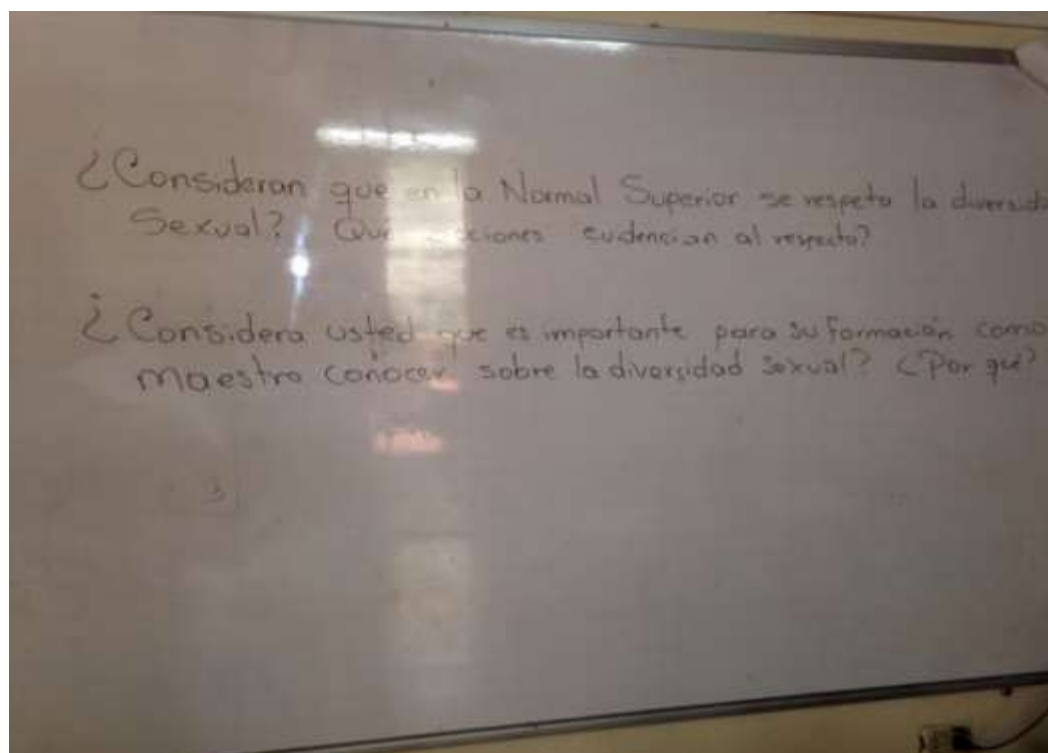 ¿Consideran que en la Normal Superior se respeta la diversid
Sexual? Qué ciones evidencian al respecto?
¿Considera usted que es importante para su formación como
maestro conocer sobre la diversidad sexual? ¿Por qué?